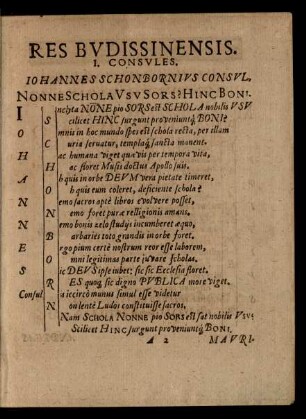 RES BVDISSINENSIS.
I. CONSVLES.
IOHANNES SCHONBORNIVS CONSVL.
NONNE SCHOLA VSV SORS? HINC BONI.
I nclyta NŌNE pio SORS est SCHOLA nobilis VSV
S cilicet HINC surgunt proveniuntq; BONI?
O mnis in hoc mundo spes est schola recta, per illam
C uria servatur, templaq́; sancta monent.
H ac humana viget quævis per tempora vita,
H ac floret Musis doctus Apollo suis.
A h quis in orbe DEUM vera pietate timeret,
O h quis eum coleret, deficiente schola?
N emo sacros aptè libros evolvere posset,
N emo foret puræ relligionis amans,
N emo bonis zelo studijs incumberet æquo,
B arbaries toto grandis in orbe foret.
E rgo pium certè nostrum reor esse laborem,
O mni legitimas parte juvare scholas.
S ic DEUS ipse jubet; sic sic Ecclesia floret.
R ES quoq; sic digno PVBLICA more viget.
Consul a iccircò munus simul esse videtur
N on lentè Ludos constituisse sacros,
Nam SCHOLA NONNE pio SORS est sat nobilis VSV?
Scilicet HINC surgunt proveniuntq́; BONI.
A 2 MAVRI-